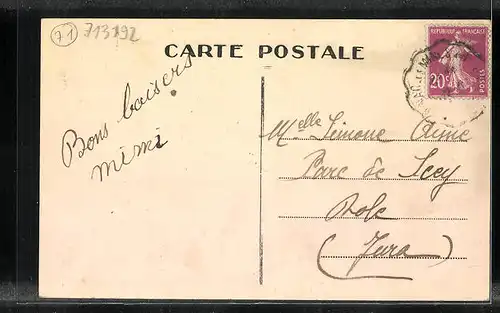 71 713792
CARTE POSTALE
REPUBLIQUE FRANÇAISE
20c
POSTES
Bons baisers
mimi
Melle Simone Aime
Parc de Scey
Dole
(Jura)